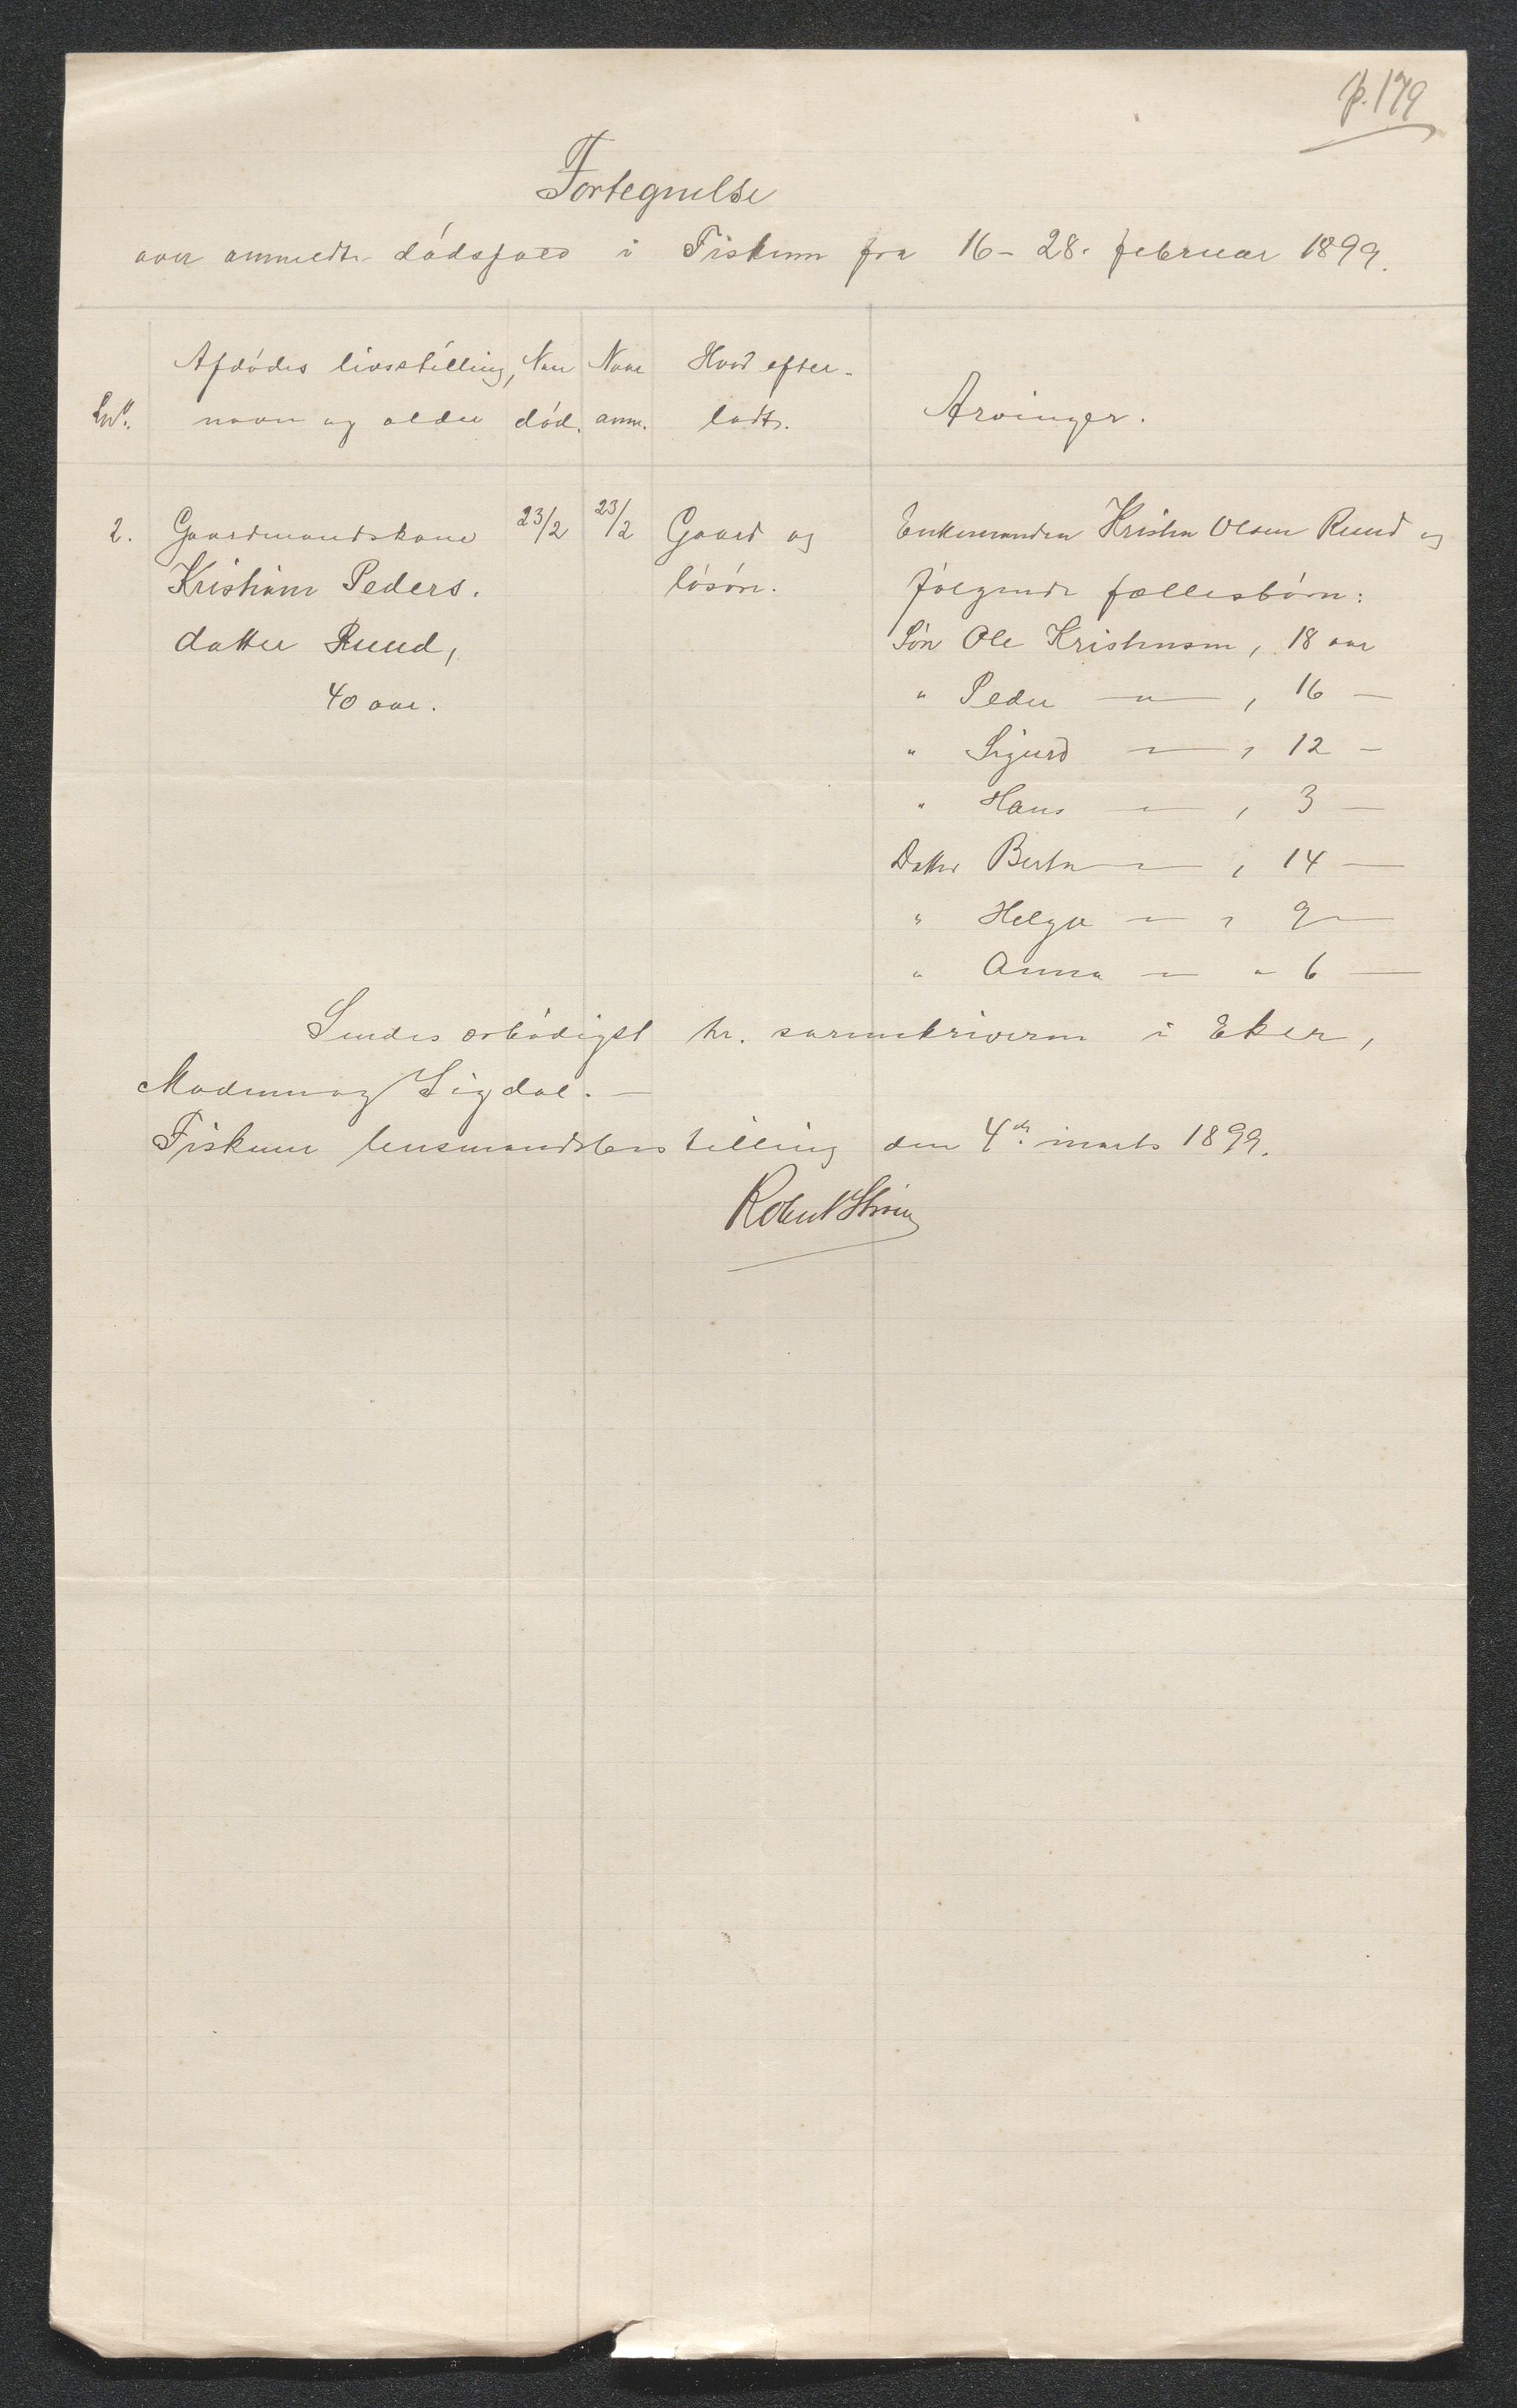 p. 179
Fortegnelse
over anmeldte dødsfald i Fiskum fra 16 - 28. februar 1899.
Lnº. Afdødes livsstilling, navn og alder
Naar død.
Naar anm.
Hvad efterladt.
Arvinger.
2. Gaardmandskone 23/2 23/2 Gaard og Enkemanden Kristen Olsen Ruud og
Kristiane Peders. løsøre. følgende fællesbørn:
datter Ruud, Søn Ole Kristensen, 18 aar
40 aar. " Peder — " — , 16 —
" Sigurd — " — , 12 —
" Hans — " — , 3 —
Datter Berta — " — , 14 —
" Helga — " — , 9 —
" Anna — " — " 6 —
Sendes ærbødigst hr. sorenskriveren i Eker,
Modum og Sigdal. —
Fiskum lensmandsbestilling den 4de marts 1899.
Robert